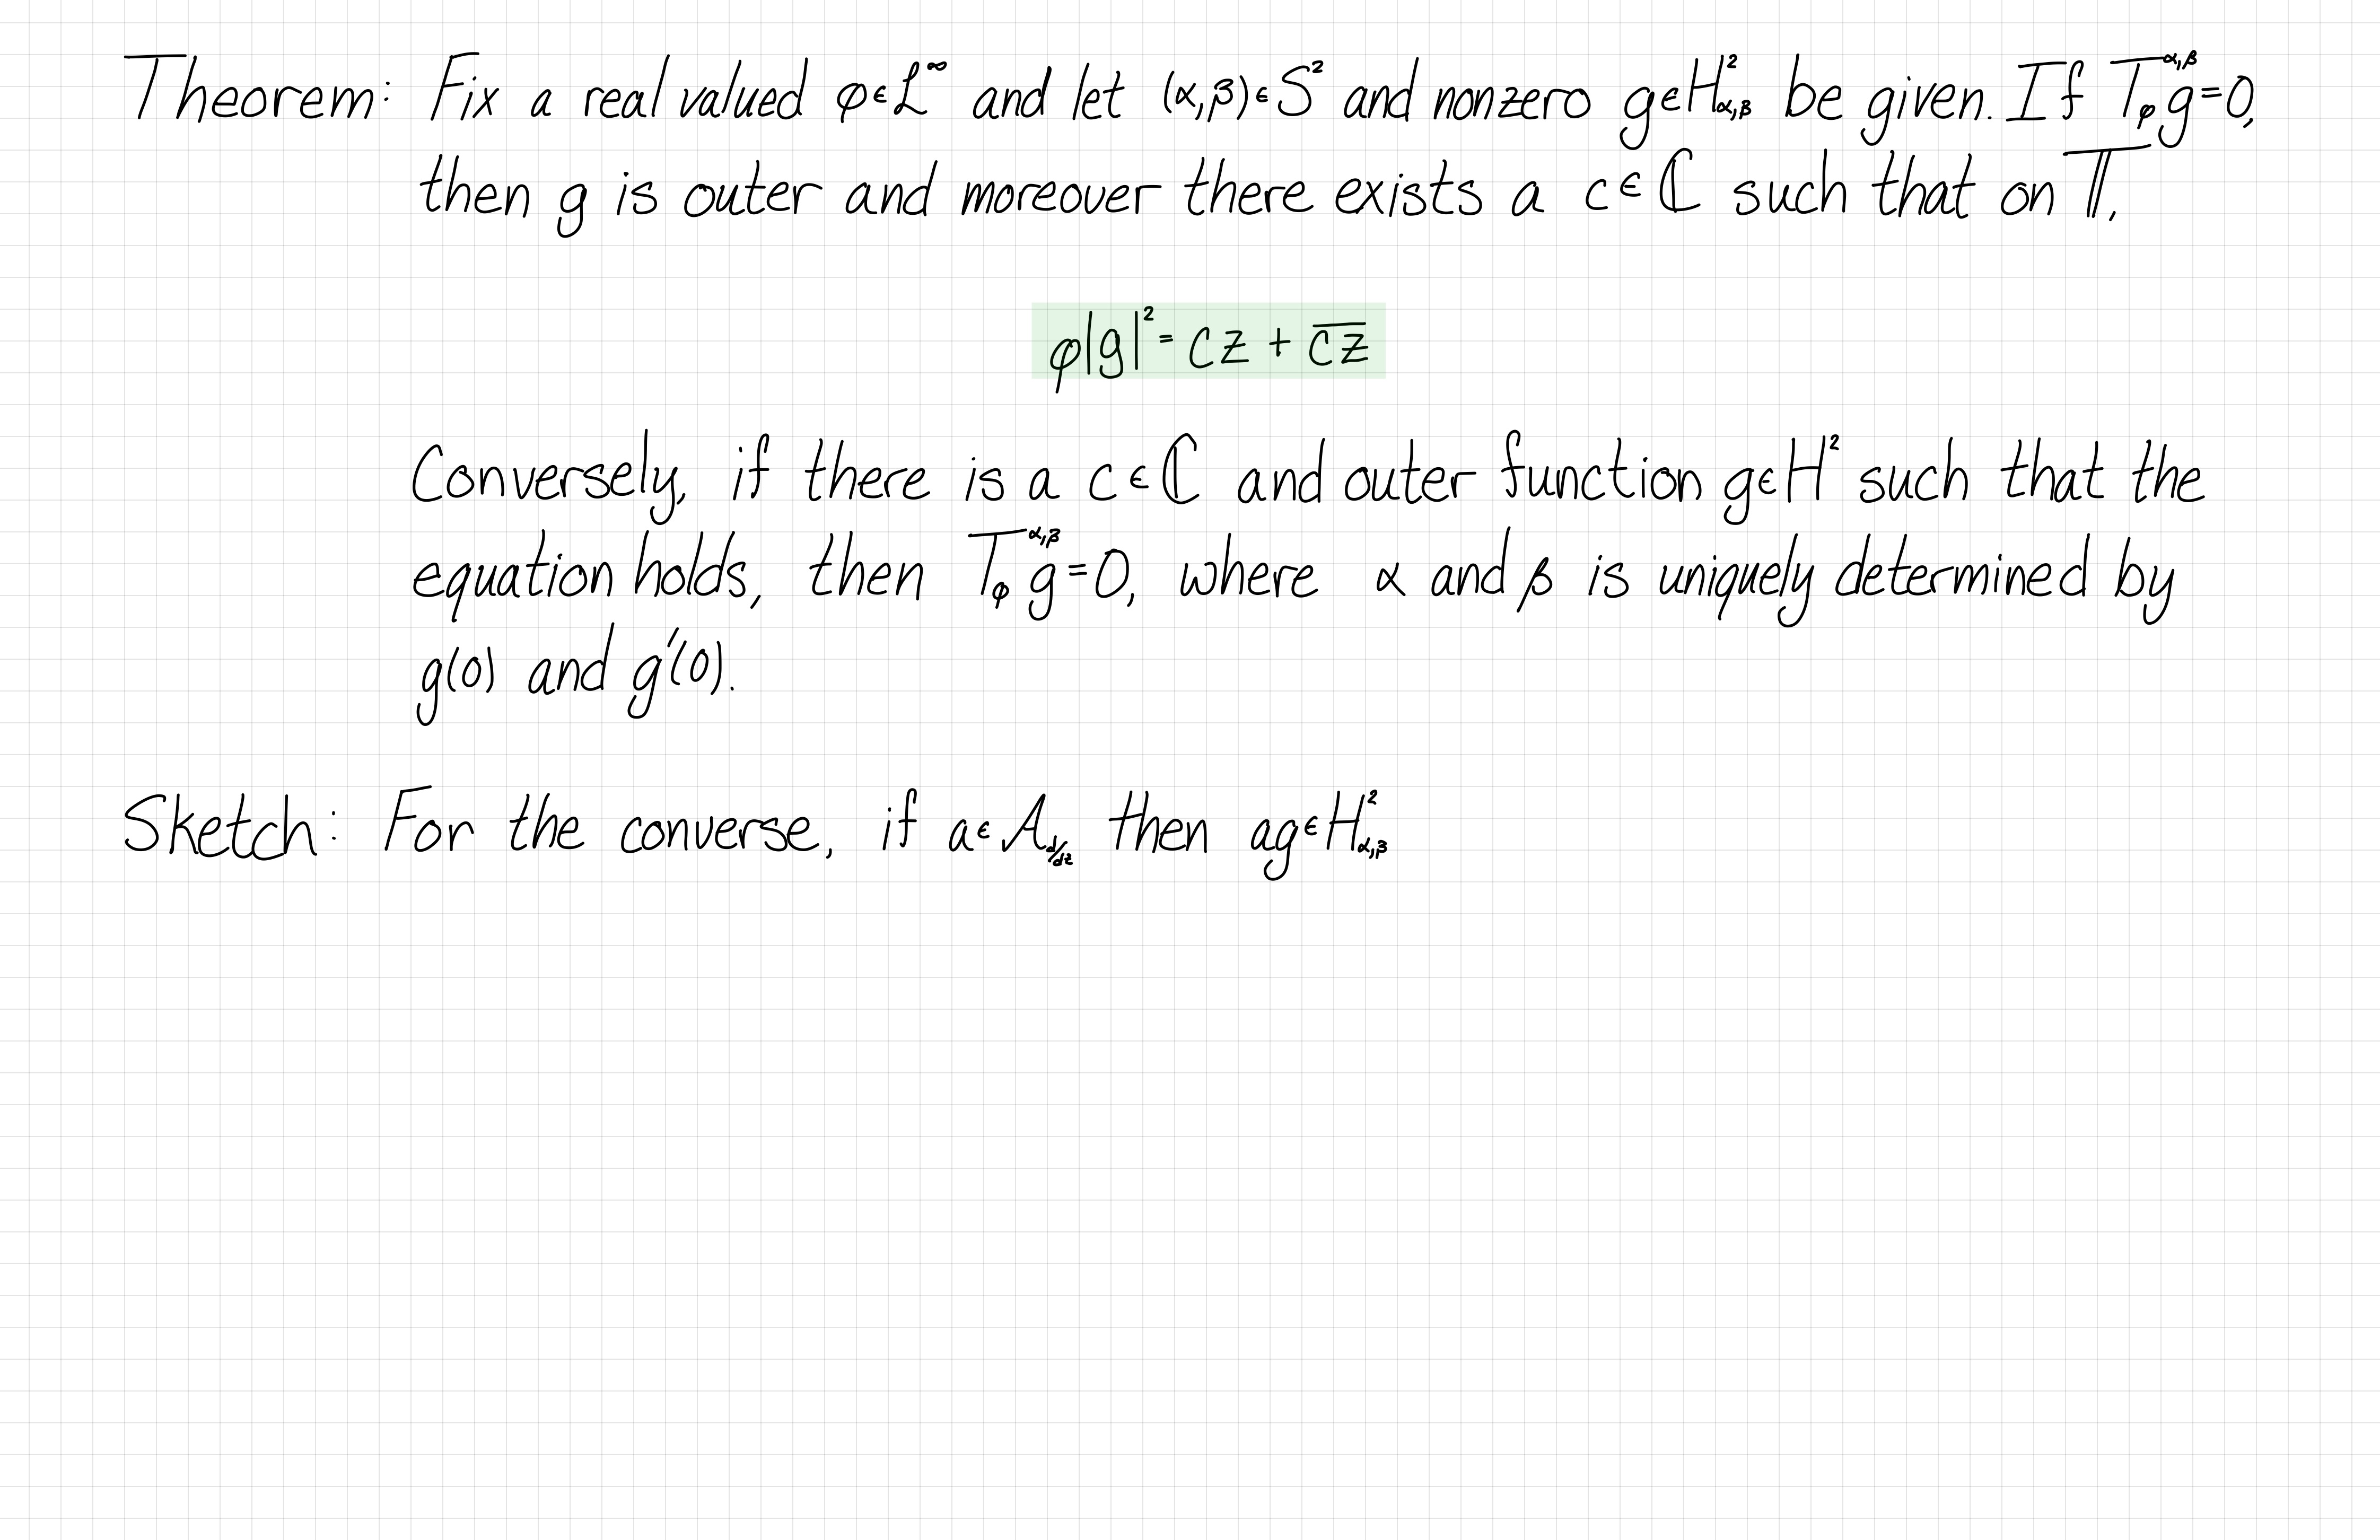 Theorem: Fix a real valued φ∈L^∞ and let (α,β)∈S² and nonzero g∈H²_{α,β} be given. If T_φ^{α,β}g=0,
then g is outer and moreover there exists a c∈ℂ such that on 𝕋,
φ|g|² = cz + \overline{cz}
Conversely, if there is a c∈ℂ and outer function g∈H² such that the
equation holds, then T_φ^{α,β}g=0, where α and β is uniquely determined by
g(0) and g′(0).
Sketch: For the converse, if a∈A_{d/dz} then ag∈H²_{α,β}